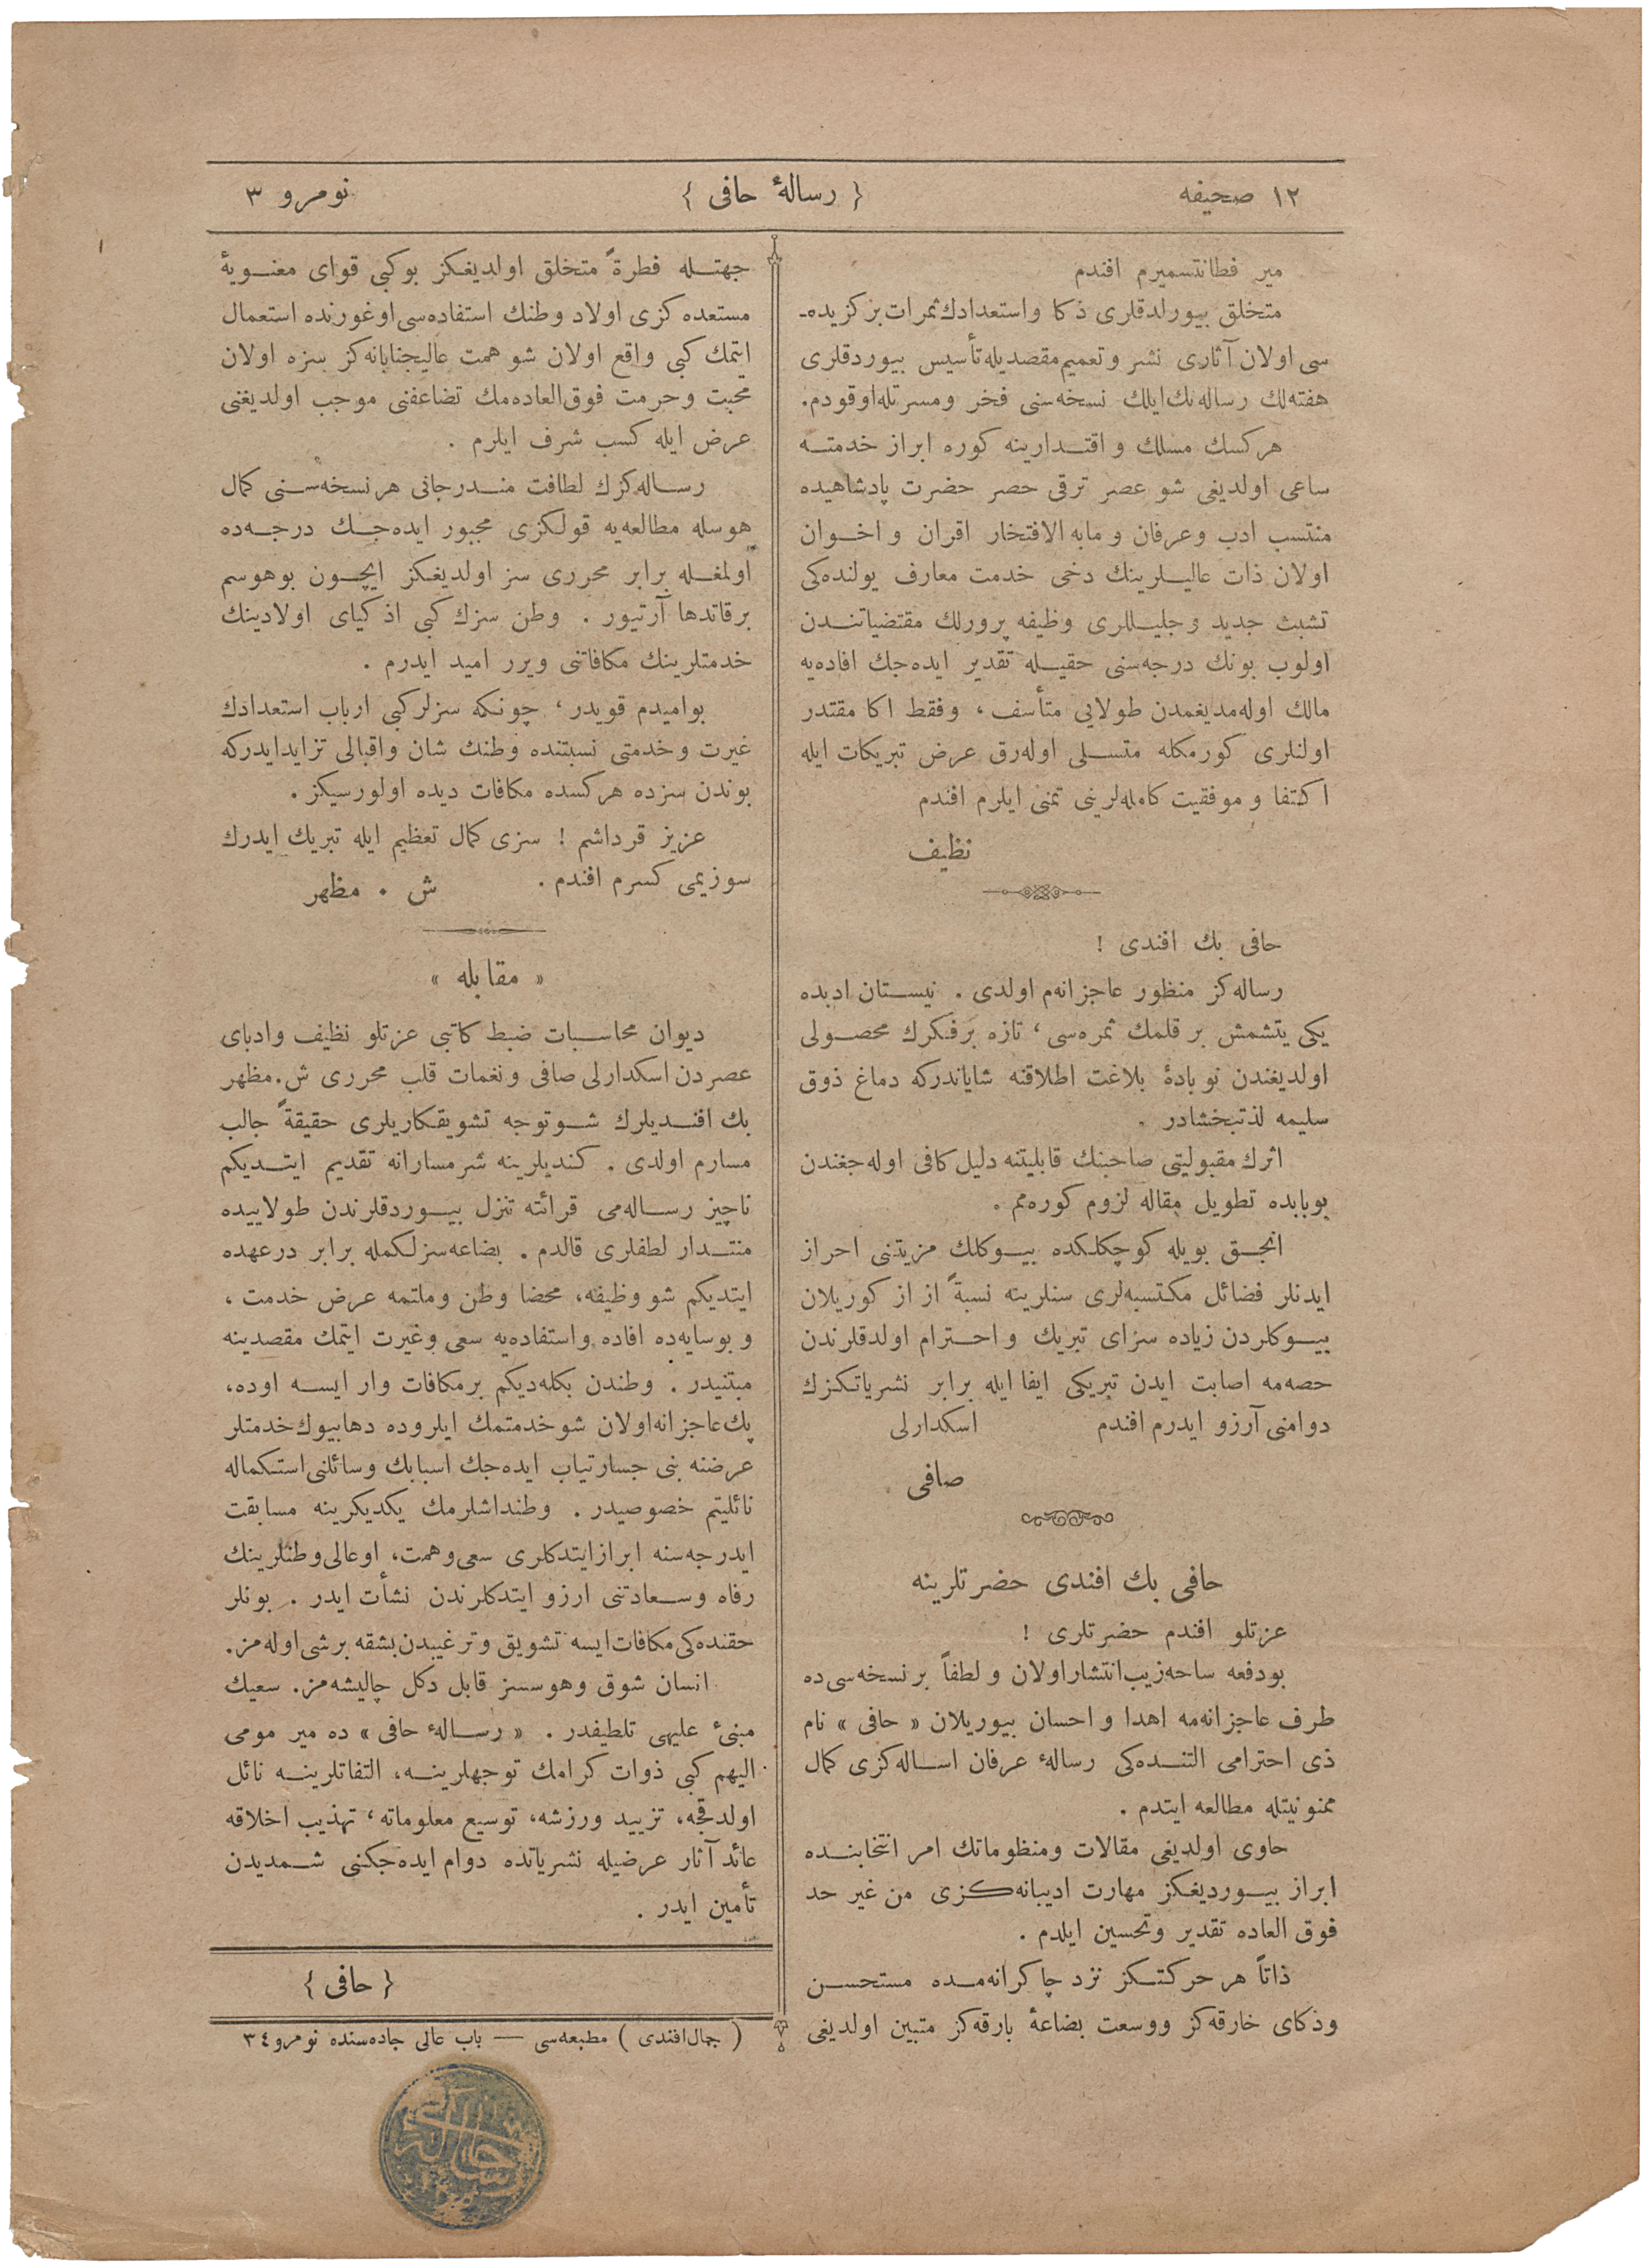 ١٢ صحيفه
{ رسالۀ حافى }
نومرو ٣
مير فطانتسميرم افندم
متخلق بيورلدقلرى ذكا و استعدادك ثمرات بر كزيده‌-
سى اولان آثارى نشر و تعميم مقصديله تأسيس بيوردقلرى
هفته‌لك رساله‌نك ايلك نسخه‌سنى فخر و مسرتله اوقودم.
هركسك مسلك و اقتدارينه كوره ابراز خدمته
ساعى اولديغى شو عصر ترقى حصر حضرت پادشاهيده
منتسب ادب و عرفان و مابه الافتخار اقران و اخوان
اولان ذات عاليلرينك دخى خدمت معارف يولنده‌كى
تشبث جديد و جليللرى وظيفه پرورلك مقتضياتندن
اولوب بونك درجه‌سنى حقيله تقدير ايده‌جك افاده‌يه
مالك اوله‌مديغمدن طولايى متأسف، وفقط اكا مقتدر
اولنلرى كورمكله متسلى اوله‌رق عرض تبريكات ايله
اكتفا و موفقيت كامله‌لرينى تمنى ايلرم افندم
نظيف
حافى بك افندى !
رساله‌كز منظور عاجزانه‌م اولدى . نيستان ادبده
يكى يتشمش بر قلمك ثمره‌سى، تازه بر فكرك محصولى
اولديغندن نوبادۀ بلاغت اطلاقنه شاياندركه دماغ ذوق
سليمه لذتبخشادر .
اثرك مقبوليتى صاحبنك قابليتنه دليل كافى اوله‌جغندن
بوبابده تطويل مقاله لزوم كوره‌مم .
انجق بويله كوچكلكده بيوكلك مزيتنى احراز
ايدنلر فضائل مكتسبه‌لرى سنلرينه نسبةً از از كوريلان
بيوكلردن زياده سزاى تبريك و احترام اولدقلرندن
حصه‌مه اصابت ايدن تبريكى ايفا ايله برابر نشرياتكزك
دوامنى آرزو ايدرم افندم اسكدارلى
صافى
حافى بك افندى حضرتلرينه
عزتلو افندم حضرتلرى !
بودفعه ساحه‌زيب انتشار اولان و لطفاً بر نسخه‌سى ده
طرف عاجزانه‌مه اهدا و احسان بيوريلان « حافى » نام
ذى احترامى التنده‌كى رسالۀ عرفان اساله‌كزى كمال
ممنونيتله مطالعه ايتدم .
حاوى اولديغى مقالات و منظوماتك امر انتخابنده
ابراز بيورديغكز مهارت اديبانه‌كزى من غير حد
فوق العاده تقدير وتحسين ايلدم .
ذاتاً هر حركتكز نزد چاكرانه‌مده مستحسن
وذكاى خارقه‌كز ووسعت بضاعۀ بارقه‌كز متبين اولديغى
جهتله فطرةً متخلق اولديغكز بوكبى قواى معنويۀ
مستعده‌كزى اولاد وطنك استفاده‌سى اوغورنده استعمال
ايتمك كبى واقع اولان شو همت عاليجنابانه‌كز سزه اولان
محبت و حرمت فوق العاده‌مك تضاعفنى موجب اولديغنى
عرض ايله كسب شرف ايلرم .
رساله‌كزك لطافت مندرجاتى هر نسخه‌سنى كمال
هوسله مطالعه‌يه قولكزى مجبور ايده‌جك درجه‌ده
اولمغله برابر محررى سز اولديغكز ايچون بو هوسم
برقاتدها آرتيور . وطن سزك كبى اذكياى اولادينك
خدمتلرينك مكافاتنى ويرر اميد ايدرم .
بواميدم قويدر، چونكه سزلركبى ارباب استعدادك
غيرت و خدمتى نسبتنده وطنك شان واقبالى تزايد ايدركه
بوندن سزده هركسده مكافات ديده اولورسيكز .
عزيز قرداشم ! سزى كمال تعظيم ايله تبريك ايدرك
سوزيمى كسرم افندم . ش . مظهر
« مقابله »
ديوان محاسبات ضبط كاتبى عزتلو نظيف وادباى
عصردن اسكدارلى صافى ونغمات قلب محررى ش. مظهر
بك افنديلرك شو توجه تشويقكاريلرى حقيقةً جالب
مسارم اولدى . كنديلرينه شرمسارانه تقديم ايتديكم
ناچيز رساله‌مى قرائته تنزل بيوردقلرندن طولاييده
منتدار لطفلرى قالدم . بضاعه‌سزلكمله برابر درعهده
ايتديكم شو وظيفه، محضا وطن وملتمه عرض خدمت ،
و بوسايه‌ده افاده واستفاده‌يه سعى وغيرت ايتمك مقصدينه
مبتنيدر . وطندن بكله‌ديكم بر مكافات وار ايسه اوده،
پك عاجزانه اولان شو خدمتمك ايلروده دها بيوك خدمتلر
عرضنه بنى جسارتياب ايده‌جك اسبابك وسائلنى استكماله
نائليتم خصوصيدر . وطنداشلرمك يكديكرينه مسابقت
ايدرجه‌سنه ابراز ايتدكلرى سعى وهمت، اوعالى وطنلرينك
رفاه وسعادتنى ارزو ايتدكلرندن نشأت ايدر . بونلر
حقنده‌كى مكافات ايسه تشويق وترغيبدن بشقه برشى اوله‌مز.
انسان شوق وهوسسز قابل دكل چاليشه‌مز. سعيك
مبنئ عليهى تلطيفدر . « رسالۀ حافى » ده مير مومى
اليهم كبى ذوات كرامك توجهلرينه، التفاتلرينه نائل
اولدقجه، تزييد ورزشه، توسيع معلوماته، تهذيب اخلاقه
عائد آثار عرضيله نشرياتده دوام ايده‌جكنى شمديدن
تأمين ايدر .
{ حافى }
( جمال افندى ) مطبعه‌سى — باب عالى جاده‌سنده نومرو ٣٤